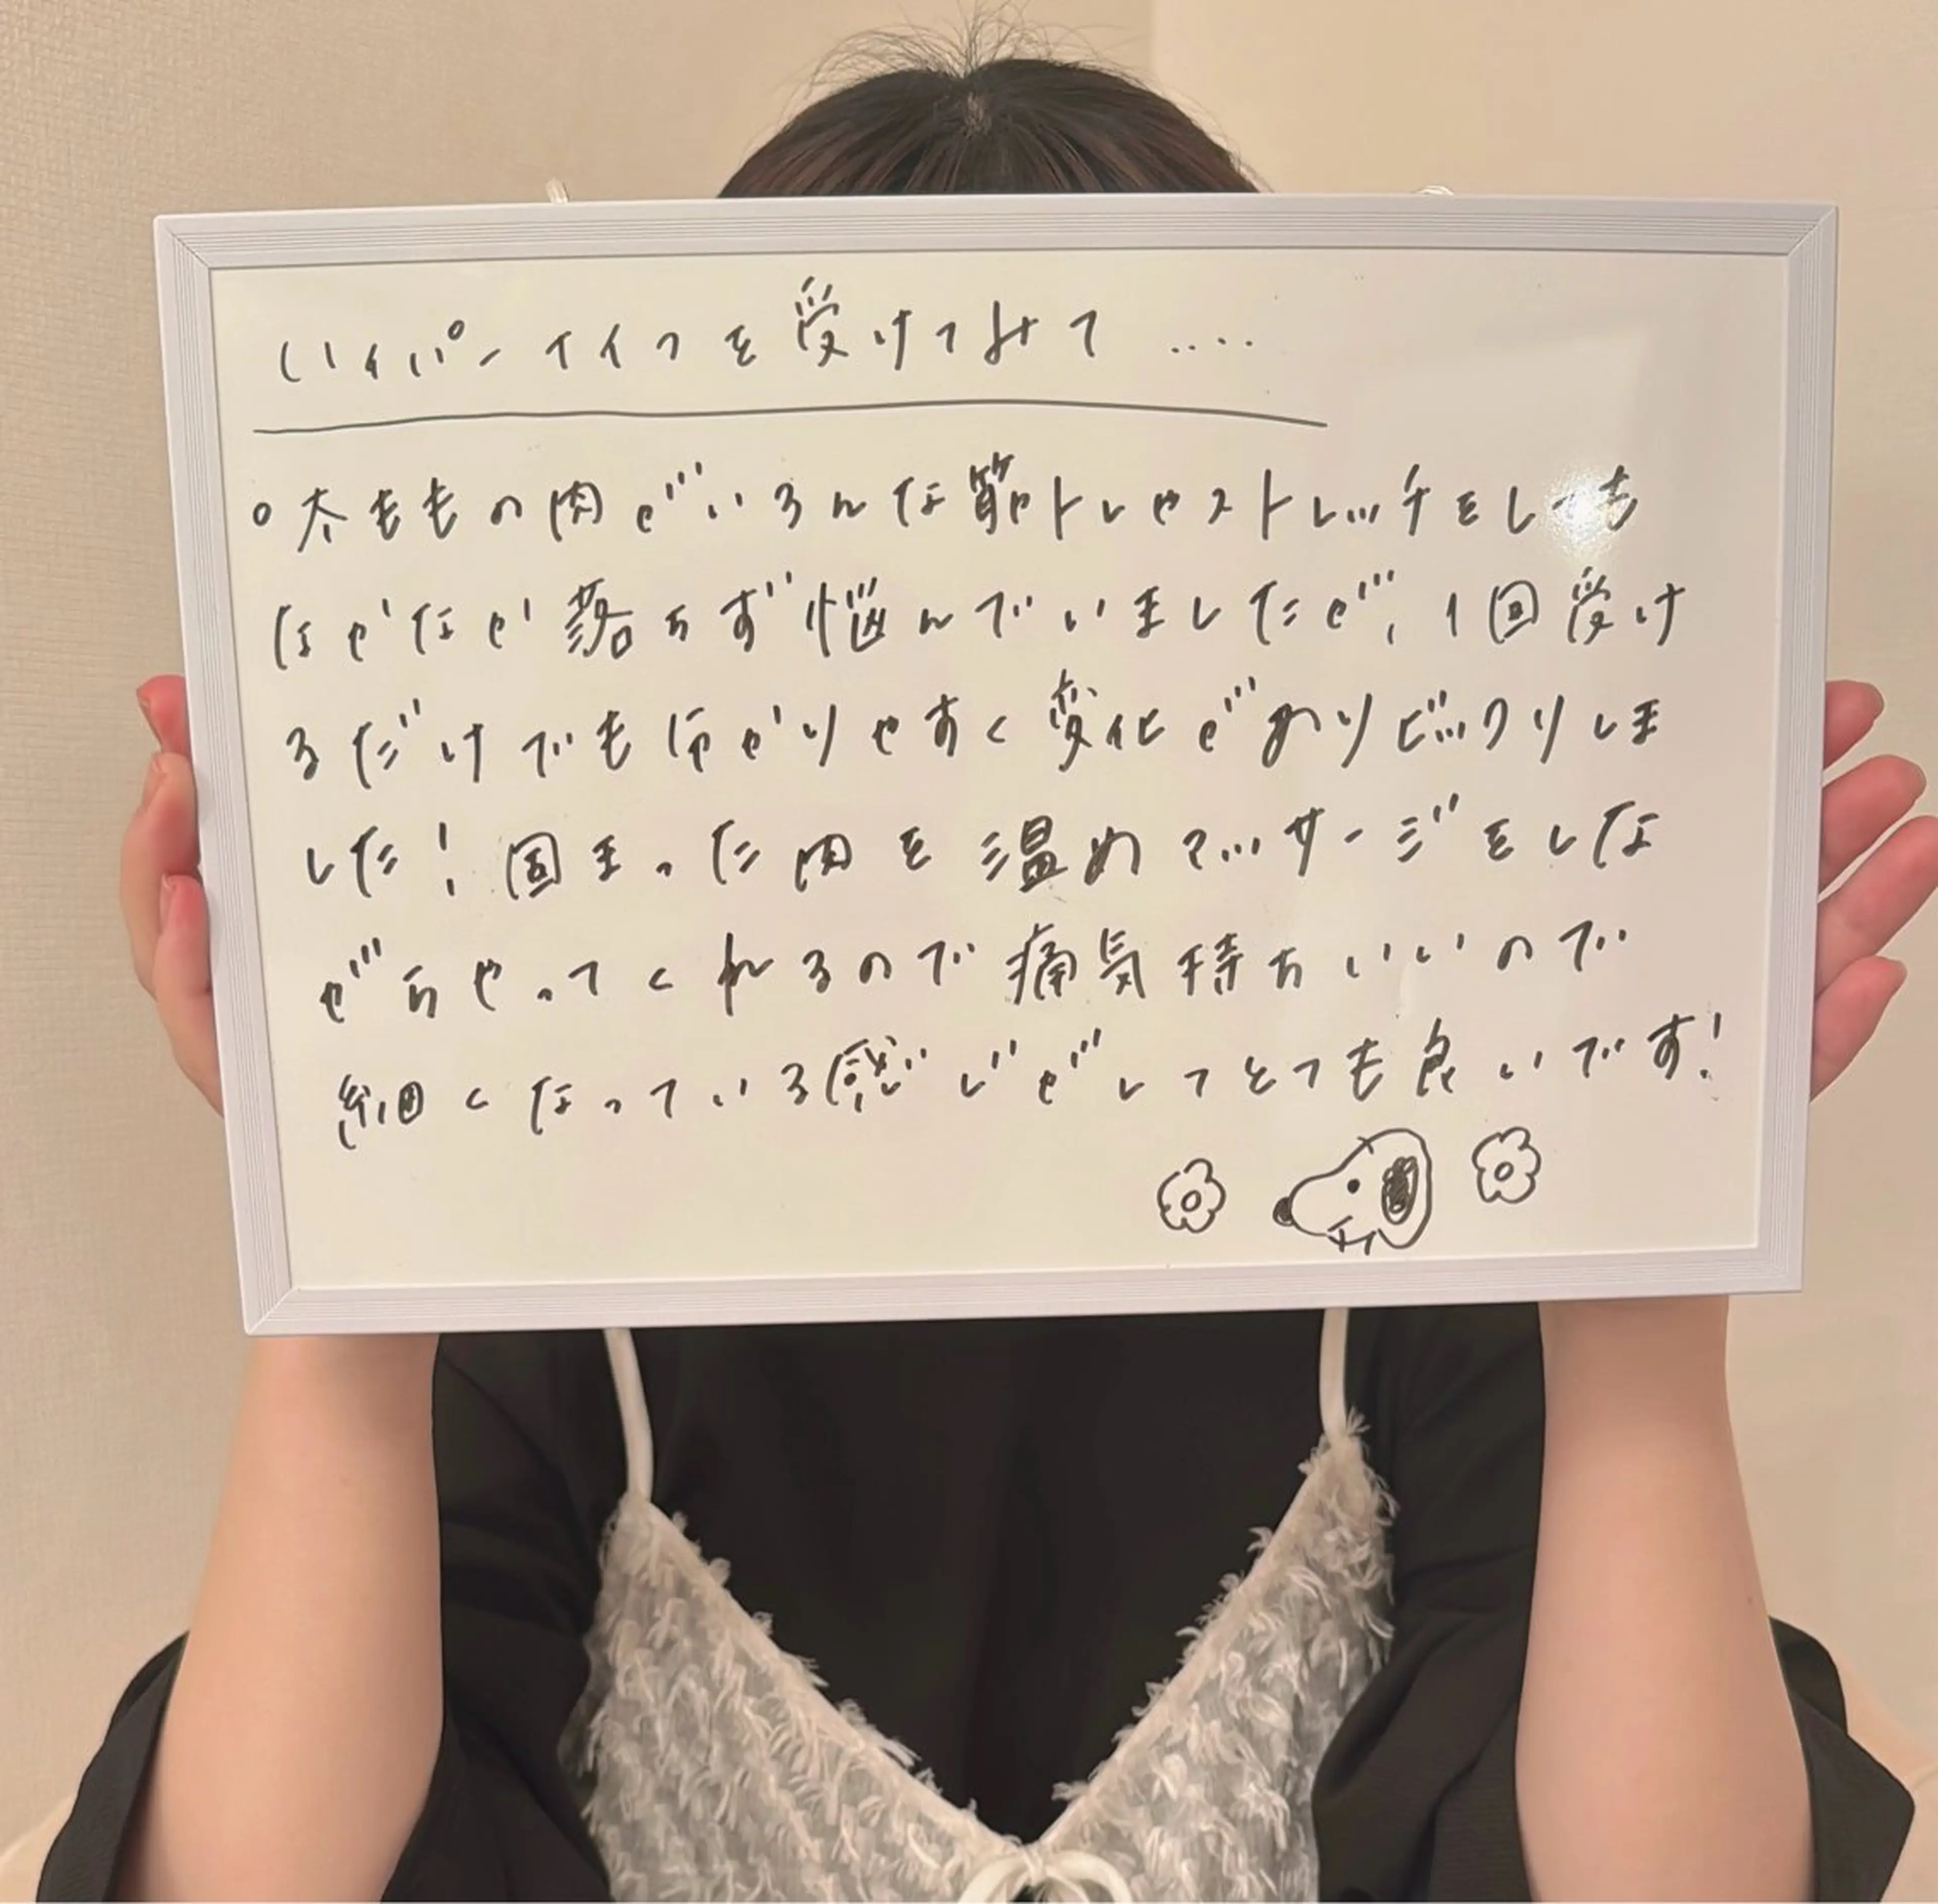 ハイパーナイフを受けてみて....
。太ももの肉がいろんな筋トレやストレッチをしても
なかなか落ちず悩んでいましたが、1回受け
るだけでも分かりやすく変化がありビックリしま
した!固まった肉を温めマッサージをしな
がらやってくれるので痛気持ちいいので
細くなっている感じがしてとても良いです!